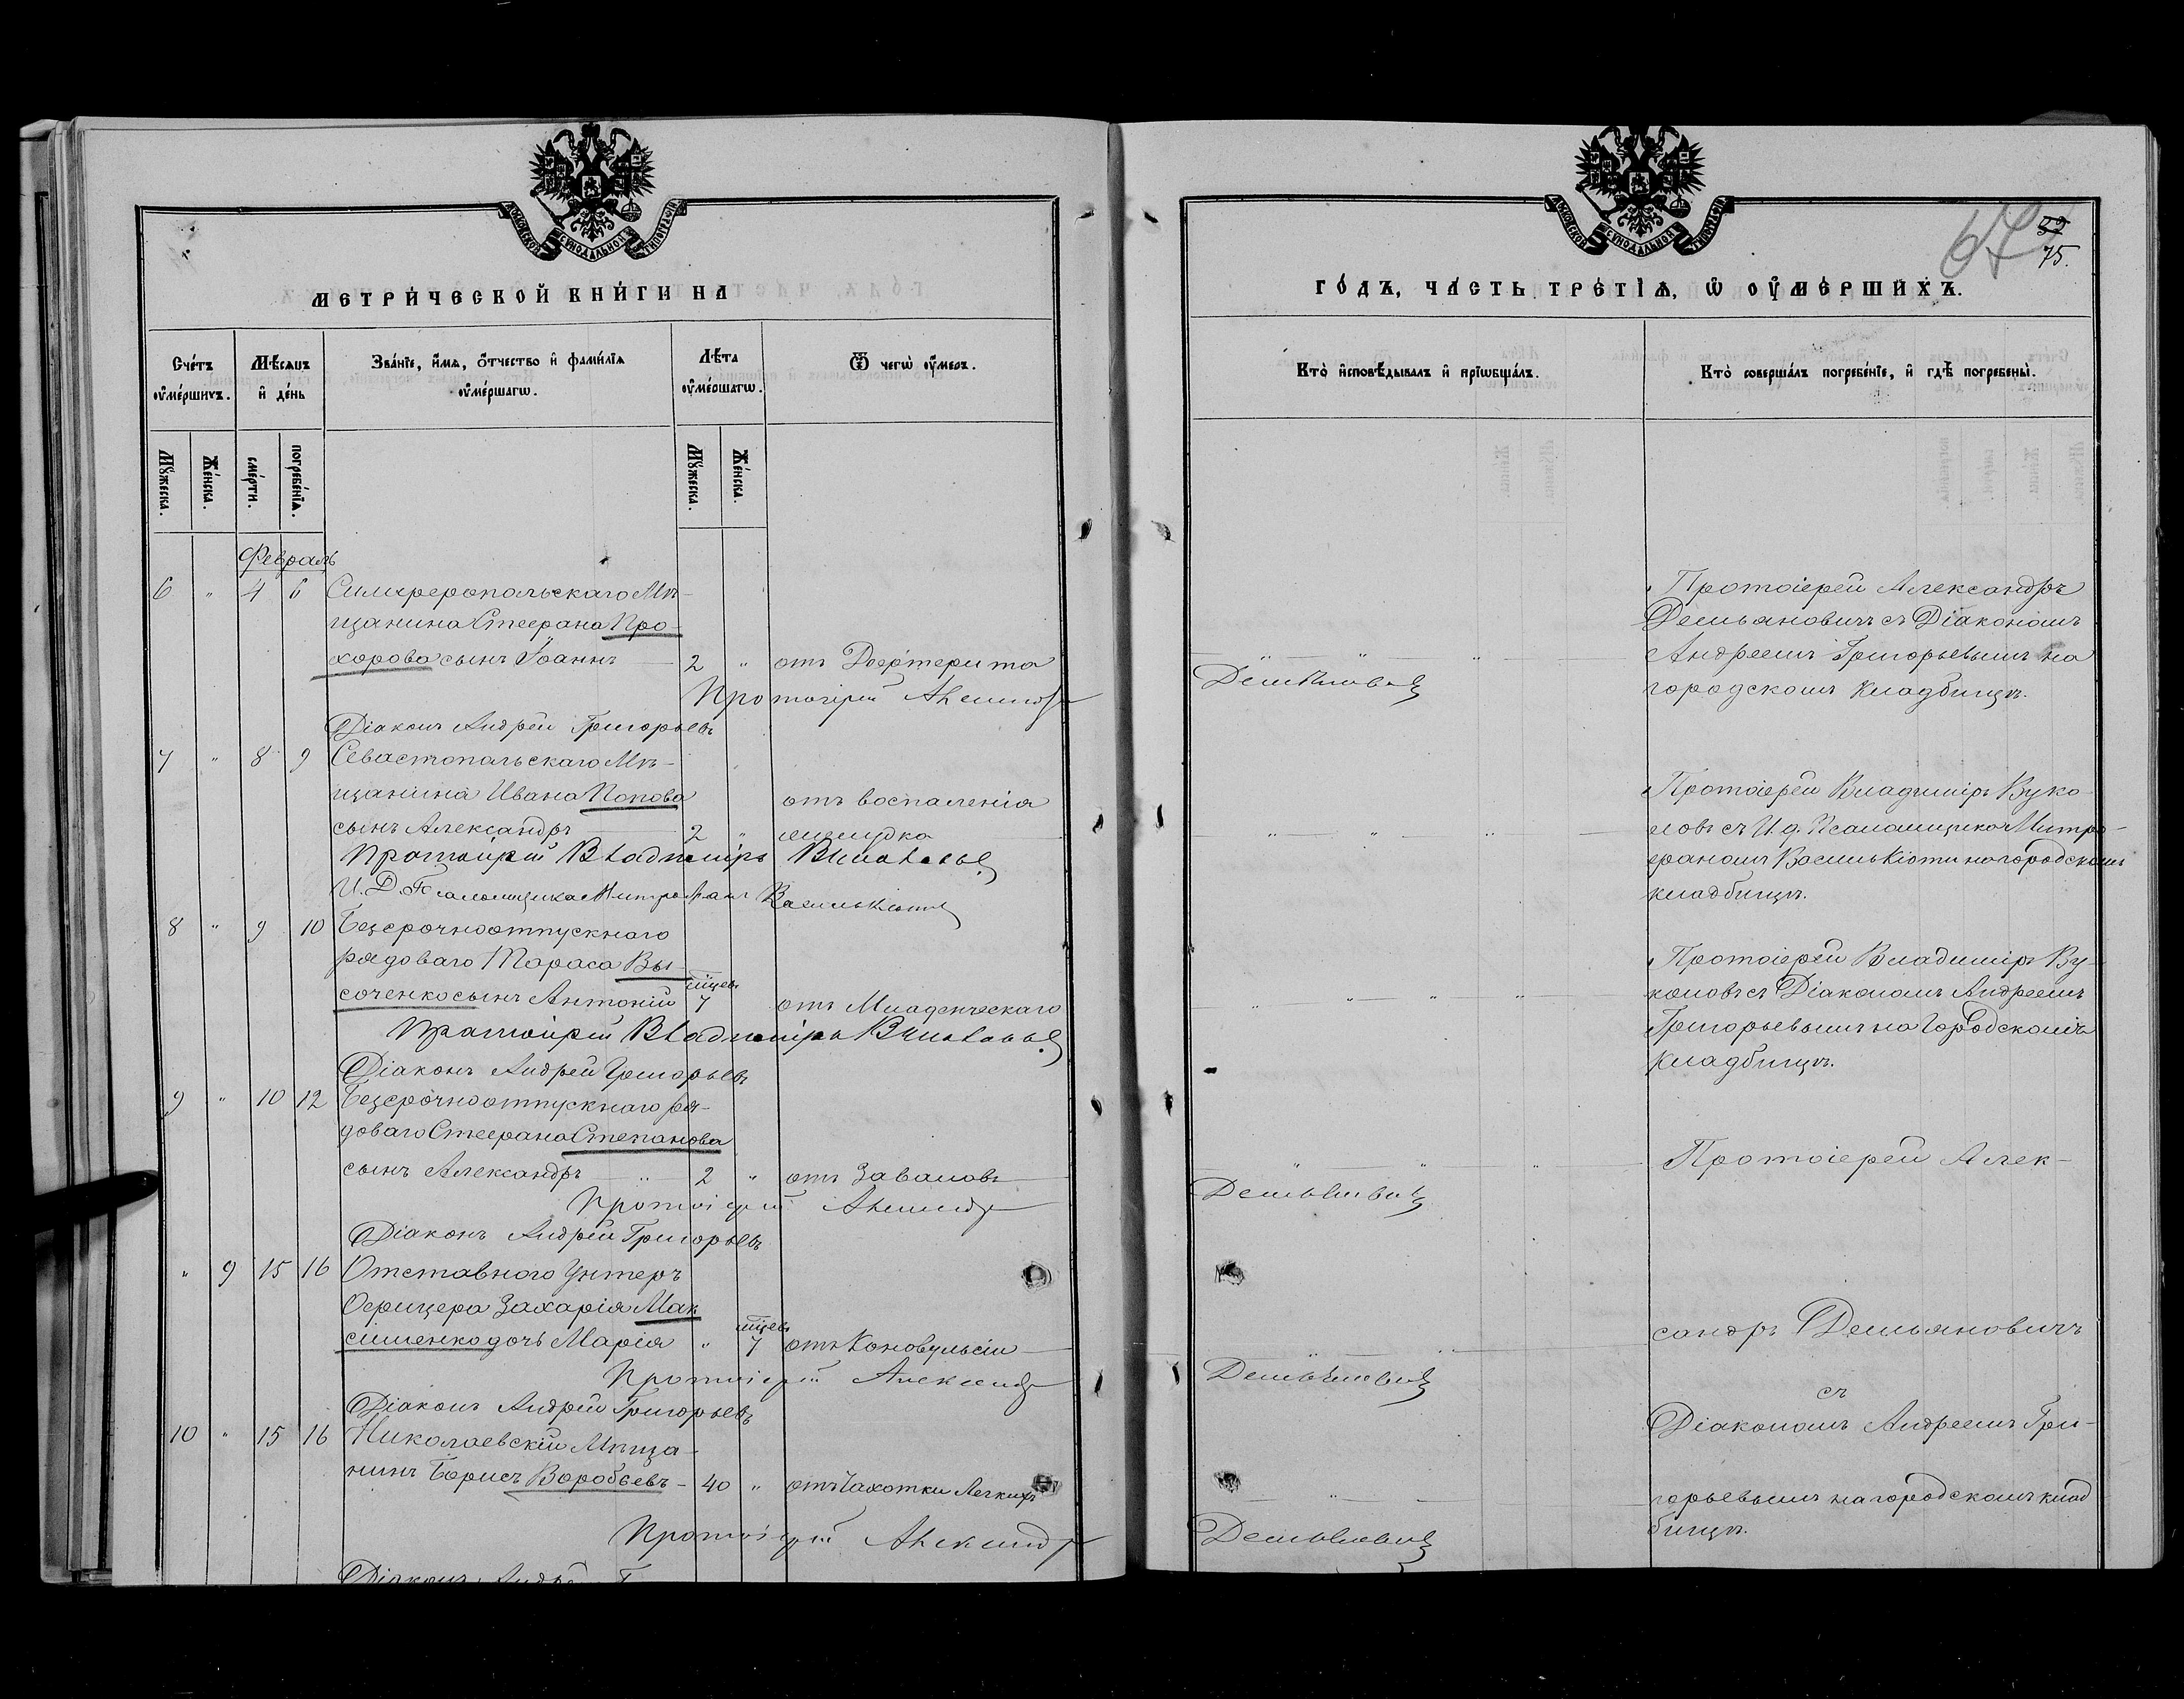 МОСКОВСКОЙ СѴНОДАЛЬНОЙ ТИПОГРАФІИ
МЕТРИ́ЧЕСКОЙ КНИ́ГИ НА
Сче́тъ ᲂу҆ме́ршихъ.
Мѣ́сяцъ и҆ де́нь
Зва́нїе, и҆́мѧ, ѻ҆́тчество и҆ фами́лїѧ ᲂу҆ме́ршагѡ.
Лѣ́та ᲂу҆ме́ршагѡ.
Ѿ чегѡ̀ ᲂу҆́меръ.
Мꙋ́жеска.
Же́нска.
сме́рти.
погребе́нїѧ.
Мꙋ́жеска.
Же́нска.
Февраль
6 " 4 6 Симферопольскаго Мѣ-
щанина Стефана Про-
хорова сынъ Іоаннъ 2 " отъ Дефтерита
Протоіерей Александръ
Діаконъ Андрей Григорьевъ
7 " 8 9 Севастопольскаго Мѣ-
щанина Ивана Попова отъ воспаленія
сынъ Александръ 2 " желудка
Протоіерей Владиміръ Вуколовъ
И. Д. Псаломщика Митрофанъ Василькіоти
8 " 9 10 Безсрочноотпускнаго
рядоваго Тараса Вы-
соченко сынъ Антоній мѣсцев 7 отъ Младенческаго
Протоіерей Владиміръ Вуколовъ
Діаконъ Андрей Григорьевъ
9 " 10 12 Безсрочноотпускнаго ря-
доваго Стефана Степанова
сынъ Александръ " 2 " отъ Заваловъ
Протоіерей Александръ
Діаконъ Андрей Григорьевъ
" 9 15 16 Отставного Унтеръ
Офицера Захарія Мак
сименко дочь Марія " мѣсцев 7 отъ Коновульсіи
Протоіерей Александръ
Діаконъ Андрей Григорьевъ
10 " 15 16 Николаевскій Мѣща-
нинъ Борисъ Воробьевъ - 40 " отъ Чахотки Легкихъ
Протоіерей Александръ
Діаконъ Андрей Г
МОСКОВСКОЙ СѴНОДАЛЬНОЙ ТИПОГРАФІИ
67
39
75.
ГО́ДЪ, ЧА́СТЬ ТРЕ́ТЇѦ, Ѡ҆ ОУ҆МЕ́РШИХЪ.
Кто̀ и҆сповѣ́дывалъ и҆ прїѡбща́лъ.
Кто̀ соверша́лъ погребе́нїе, и҆ гдѣ̀ погребены̀.
Протоіерей Александръ
Демьяновичъ съ Діакономъ
Андреемъ Григорьевымъ на
городскомъ кладбищѣ.
Демьяновичъ
Протоіерей Владиміръ Вуко
ловъ съ И. д. Псаломщика Митро-
фаномъ Василькіоти на городскомъ
кладбищѣ.
Протоіерей Владиміръ Ву-
коловъ съ Діакономъ Андреемъ
Григорьевымъ на Городскомъ
кладбищѣ.
Протоіерей Алек-
Демьяновичъ
сандръ Демьяновичъ
Демьяновичъ
съ
Діакономъ Андреемъ Гри-
горьевымъ на городскомъ клад
бищѣ.
Демьяновичъ